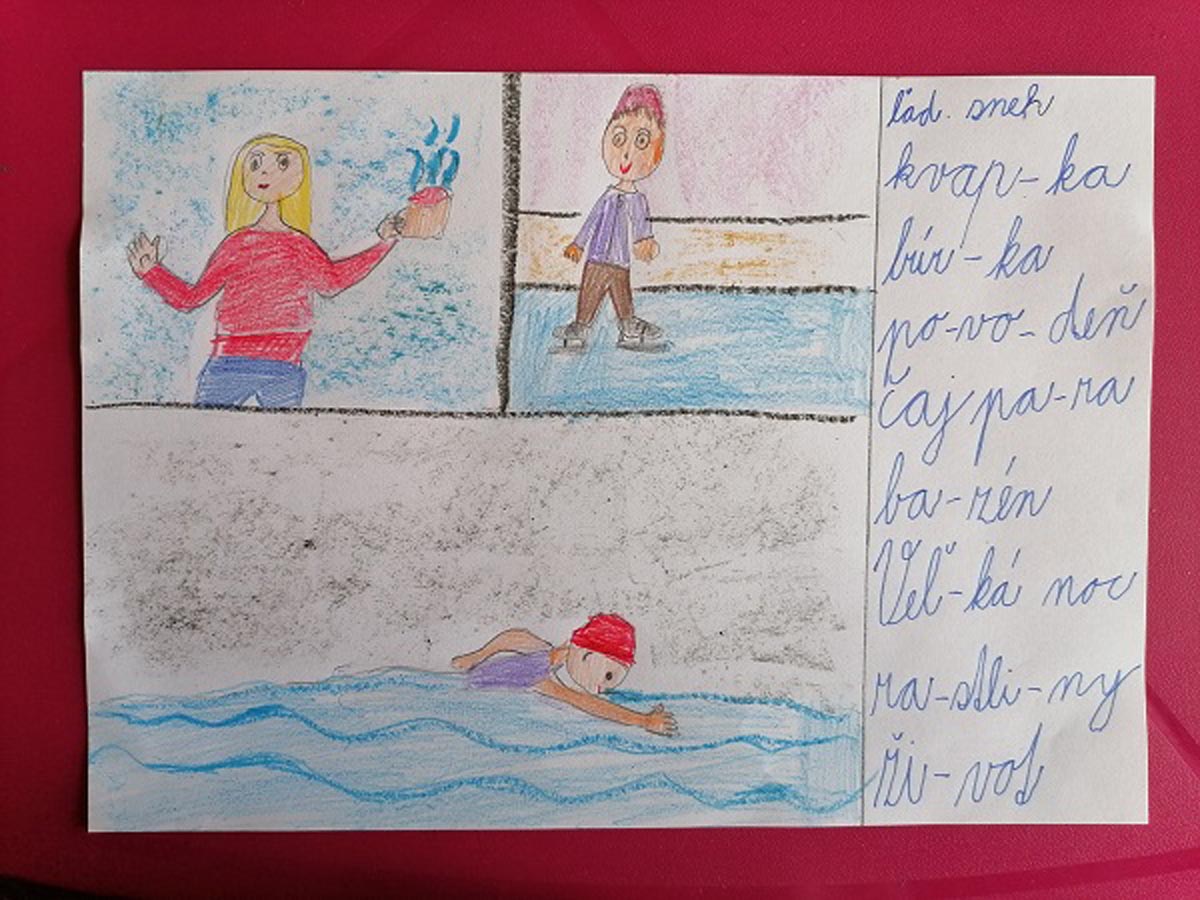 ľad. sneh
kvap-ka
búr-ka
po-vo-deň
čaj pa-ra
ba-zén
Veľ-ká noc
ra-stli-ny
ži-vot